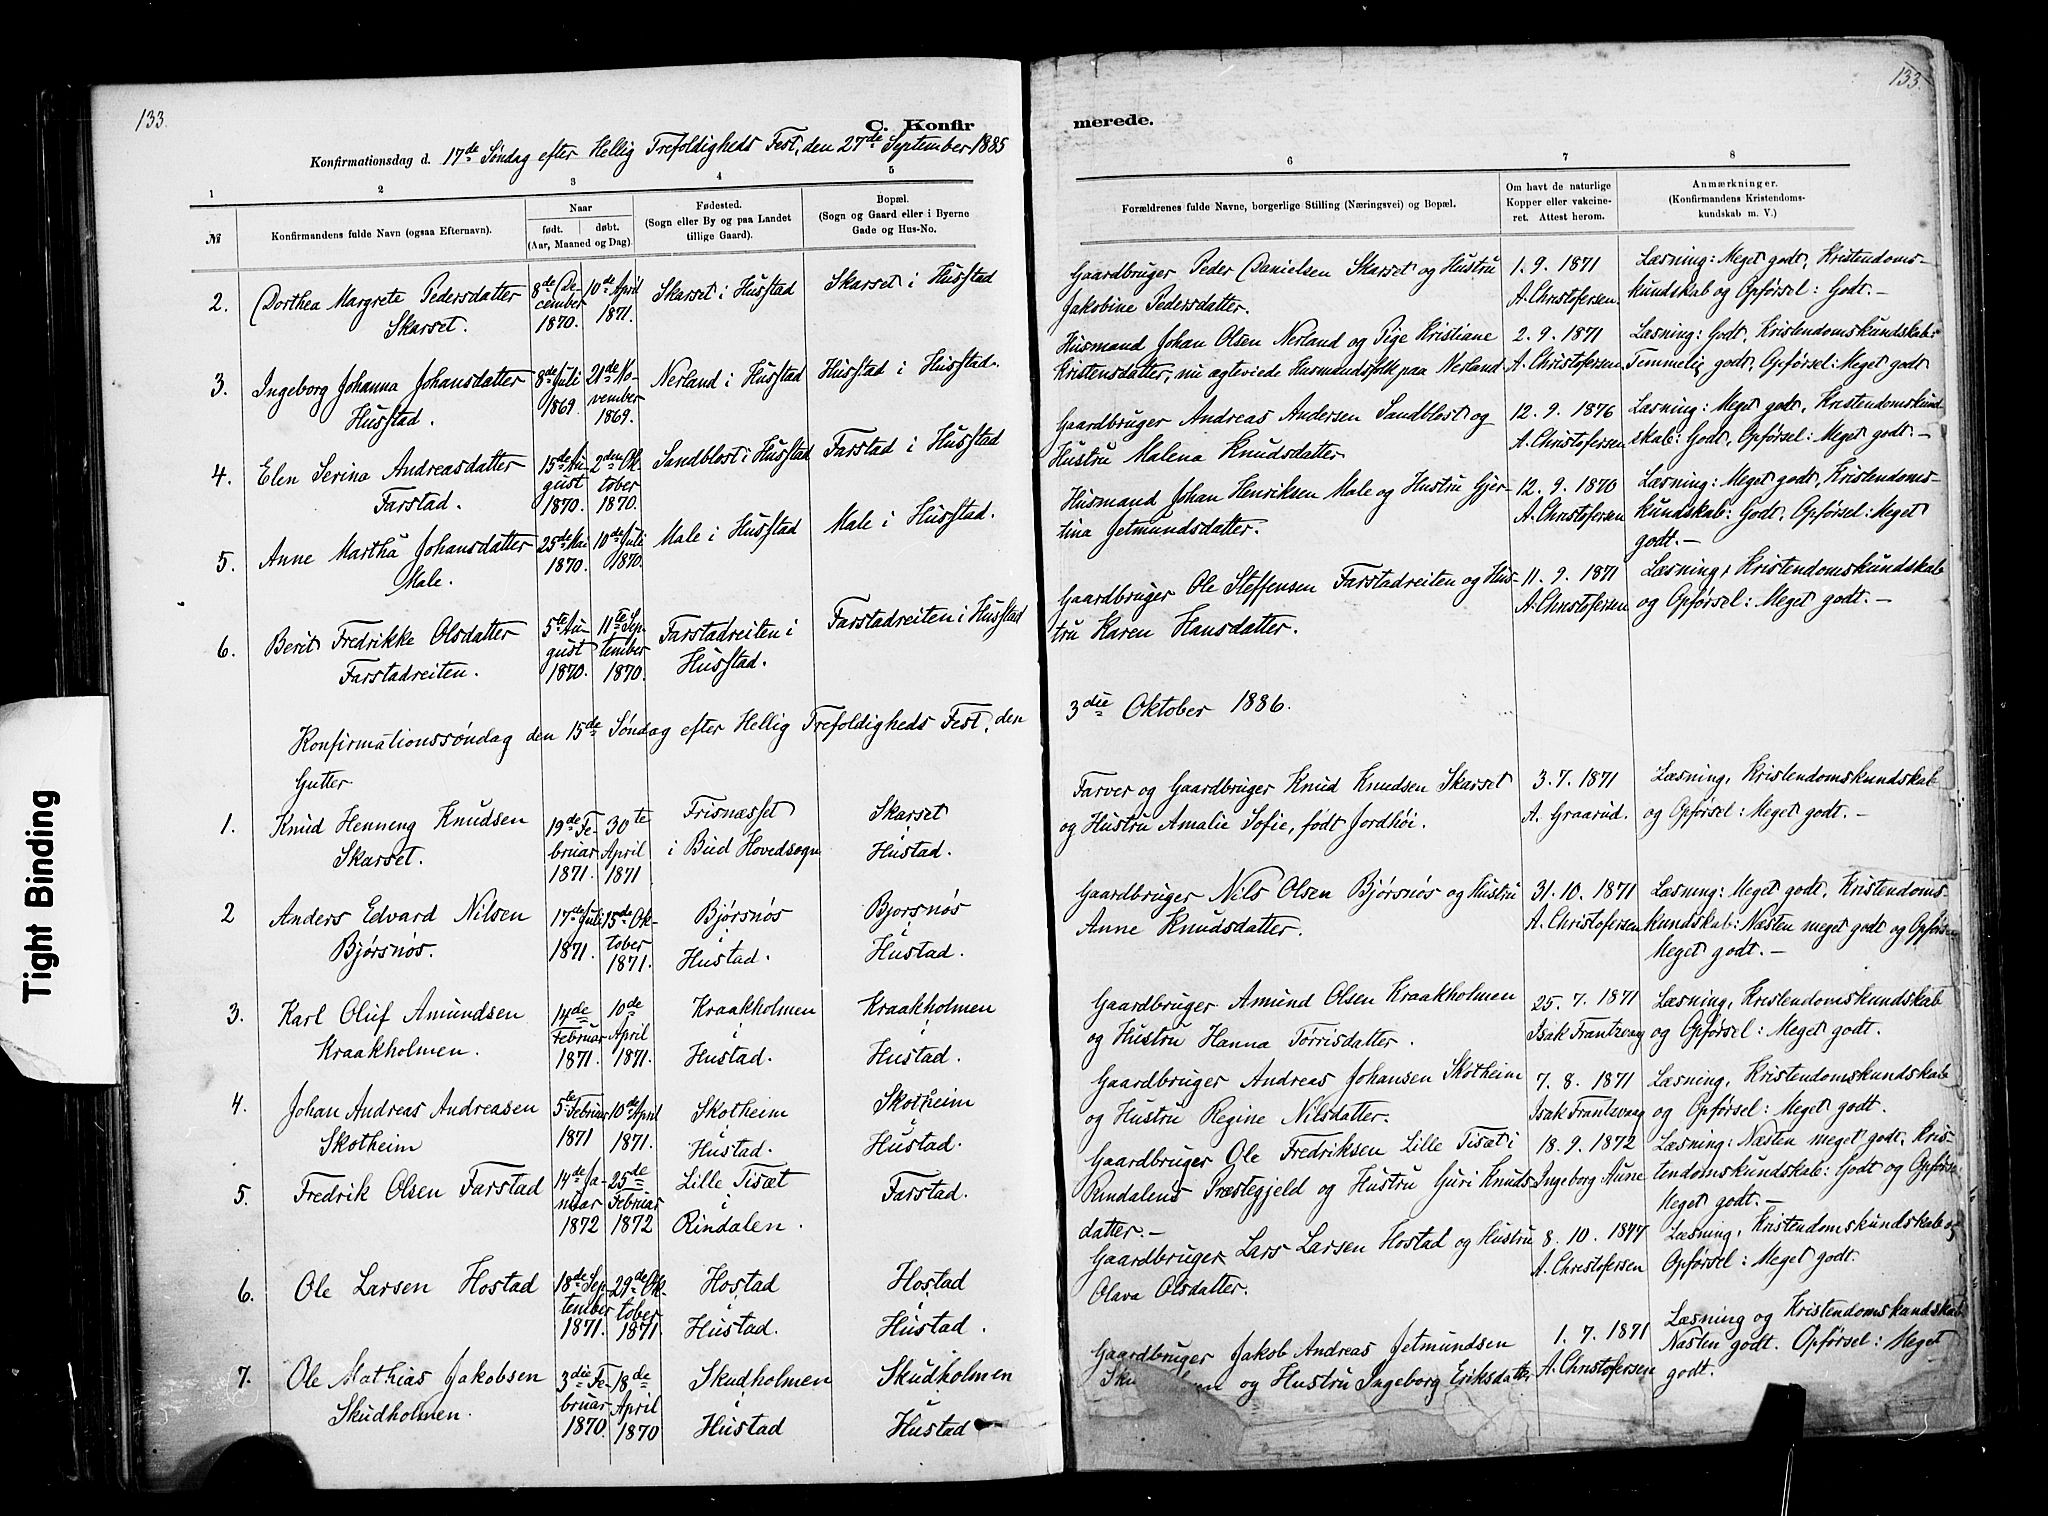 133.
133.
C. Konfir
merede.
Konfirmationsdag d. 17de Søndag efter Hellig Trefoldigheds Fest, den 27de September 1885
1
2
3
4
5
6
7
8
№
Konfirmandens fulde Navn (ogsaa Efternavn).
Naar
født. døbt.
(Aar, Maaned og Dag).
Fødested.
(Sogn eller By og paa Landet
tillige Gaard).
Bopæl.
(Sogn og Gaard eller i Byerne
Gade og Hus-No.
Forældrenes fulde Navne, borgerlige Stilling (Næringsvei) og Bopæl.
Om havt de naturlige
Kopper eller vakcine-
ret. Attest herom.
Anmærkninger.
(Konfirmandens Kristendoms-
kundskab m. V.)
2.
Dorthea Margrete Pedersdatter
Skarset.
8de De-
cember
1870.
10de April
1871.
Skarset i Husstad
Skarset i Husstad
Gaardbruger Peder Danielsen Skarset og Hustru
Jakobine Pedersdatter.
1. 9. 1871
A. Christofersen.
Læsning: Meget godt, Kristendoms-
kundskab og Opførsel: Godt.-
3.
Ingeborg Johanna Johansdatter
Husstad.
8de Juli
1869.
21de No-
vember
1869.
Nerland i Husstad
Husstad i Husstad.
Husmand Johan Olsen Nerland og Pige Kristiane
Kristensdatter, nu ægteviede Husmandsfolk paa Nerland
2. 9. 1871
A. Christofersen.
Læsning: Godt, Kristendomskundskab:
Temmelig godt, Opførsel: Meget godt
4.
Elen Serina Andreasdatter
Farstad.
15de Au-
gust
1870.
2den Ok-
tober
1870.
Sandblost i Husstad
Farstad i Husstad
Gaardbruger Andreas Andersen Sandblost og
Hustru Malena Knudsdatter
12. 9. 1876
A. Christofersen
Læsning: Meget godt, Kristendomskund-
skab: Godt, Opførsel: Meget godt.-
5.
Anne Martha Johansdatter
Male.
25de Mai
1870.
10de Juli
1870.
Male i Husstad
Male i Husstad.
Husmand Johan Henriksen Male og Hustru Gjer-
tina Jetmundsdatter.
12. 9. 1870
A. Christofersen
Læsning: Meget godt, Kristendoms-
kundskab: Godt, Opførsel: Meget
godt.-
6.
Berit Fredrikke Olsdatter
Farstadreiten.
5te Au-
gust
1870.
11te Sep-
tember
1870.
Farstadreiten i
Husstad.
Farstadreiten i Husstad
Gaardbruger Ole Steffensen Farstadreiten og Hus-
tru Karen Hansdatter.
11. 9. 1871
A. Christofersen
Læsning, Kristendomskundskab
og Opførsel: Meget godt.-
Konfirmationssøndag den 15de Søndag efter Hellig Trefoldigheds Fest, den
3die Oktober 1886.
Gutter
1.
Knud Henning Knudsen
Skarset.
19de Fe-
bruar
1871.
30te
April
1871
Frisnæsset
i Bud Hovedsogn
Skarset
i
Hustad.
Farver og Gaardbruger Knud Knudsen Skarset
og Hustru Amalie Sofie, født Jordhøi.
3. 7. 1871
A. Graarud.
Læsning, Kristendomskundskab
og Opførsel: Meget godt.-
2
Anders Edvard Nilsen
Bjørsnøs.
17de Juli
1871.
15de Ok-
tober
1871.
Bjørsnøs
i
Hustad.
Bjorsnøs
i
Hustad.
Gaardbruger Nils Olsen Bjørsnøs og Hustru
Anne Knudsdatter.
31. 10. 1871
A. Christofersen
Læsning: Meget godt, Kristendoms-
kundskab: Næsten meget godt og Opførsel
Meget godt.-
3.
Karl Oluf Amundsen
Kraakholmen.
14de
Februar
1871.
10de
April
1871.
Kraakholmen
i
Hustad.
Kraakholmen
i
Hustad.
Gaardbruger Amund Olsen Kraakholmen
og Hustru Hanna Tørrisdatter.
25. 7. 1871
Isak Frantzvaag
Læsning, Kristendomskundskab
og Opførsel: Meget godt.
4.
Johan Andreas Andreasen
Skotheim
5te Februar
1871
10de April
1871.
Skotheim
i
Hustad.
Skotheim
i
Hustad.
Gaardbruger Andreas Johansen Skotheim
og Hustru Regine Nilsdatter.
7. 8. 1871
Isak Frantzvaag
Læsning, Kristendomskundskab
og Opførsel: Meget godt.
5.
Fredrik Olsen Farstad
14de Ja-
nuar
1872
25de
Februar
1872
Lille Tisæt
i
Rindalen.
Farstad.
Gaardbruger Ole Fredriksen Lille Tisæt i
Rindalens Præstegjeld og Hustru Guri Knuds-
datter.-
18. 9. 1872
Ingeborg Aune
Læsning: Næsten meget godt, Kris-
tendomskundskab: Godt og Opførsel
Meget godt.-
6.
Ole Larsen Hostad
18de Sep-
tember
1871.
29de Ok-
tober
1871.
Hostad
i
Hustad.
Hostad
i
Hustad.
Gaardbruger Lars Larsen Hostad og Hustru
Olava Olsdatter.
8. 10. 1877
A. Christofersen
Læsning, Kristendomskundskab og
Opførsel: Meget godt.
7.
Ole Mathias Jakobsen
Skudholmen.
3die Fe-
bruar
1870.
18de
April
1870
Skudholmen
i
Hustad
Skudholmen
i
Hustad
Gaardbruger Jakob Andreas Jetmundsen
og Hustru Ingeborg Eriksdatter
1. 7. 1871
A. Christofersen
Læsning og Kristendomskundskab
Næsten godt. Opførsel: Meget
godt.
Tight Binding